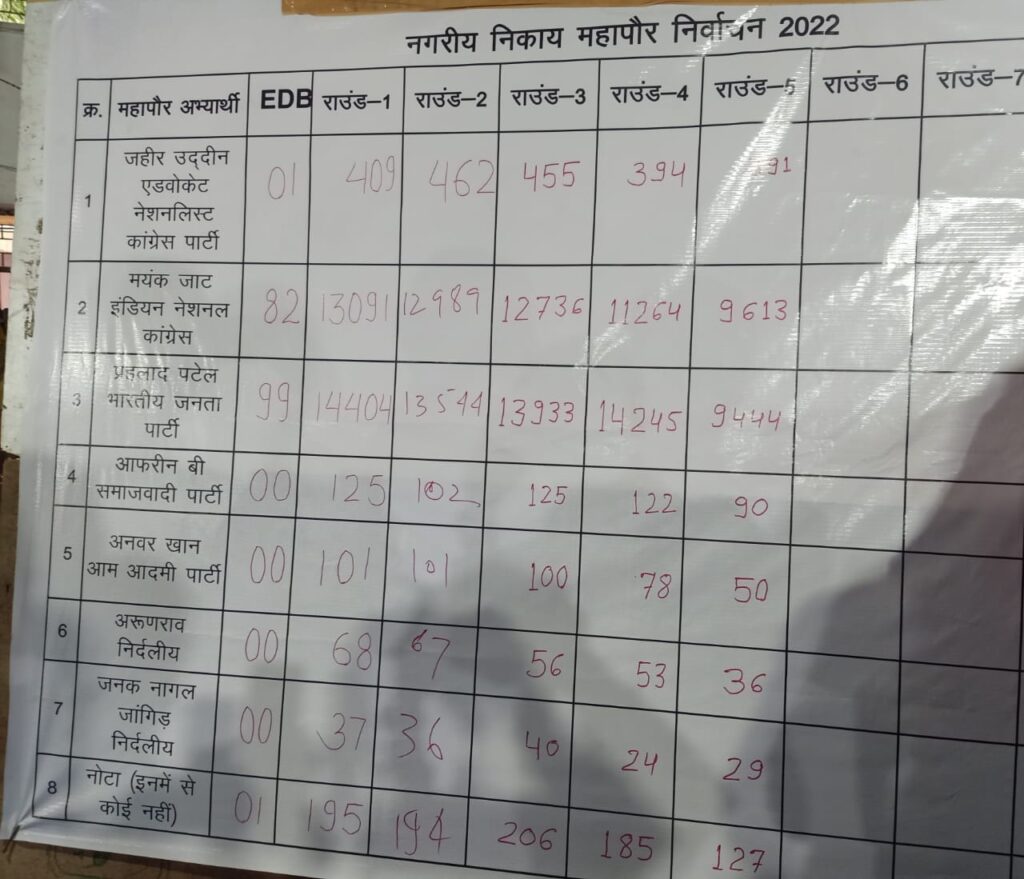 नगरीय निकाय महापौर निर्वाचन 2022
क्र. महापौर अभ्यार्थी EDB राउंड–1 राउंड–2 राउंड–3 राउंड–4 राउंड–5 राउंड–6 राउंड–7
1 जहीर उद्दीन एडवोकेट नेशनलिस्ट कांग्रेस पार्टी 01 409 462 455 394
2 मयंक जाट इंडियन नेशनल कांग्रेस 82 13091 12989 12736 11264 9613
3 प्रहलाद पटेल भारतीय जनता पार्टी 99 14404 13544 13933 14245 9444
4 आफरीन बी समाजवादी पार्टी 00 125 102 125 122 90
5 अनवर खान आम आदमी पार्टी 00 101 101 100 78 50
6 अरूणराव निर्दलीय 00 68 67 56 53 36
7 जनक नागल जांगिड़ निर्दलीय 00 37 36 40 24 29
8 नोटा (इनमें से कोई नहीं) 01 195 194 206 185 127